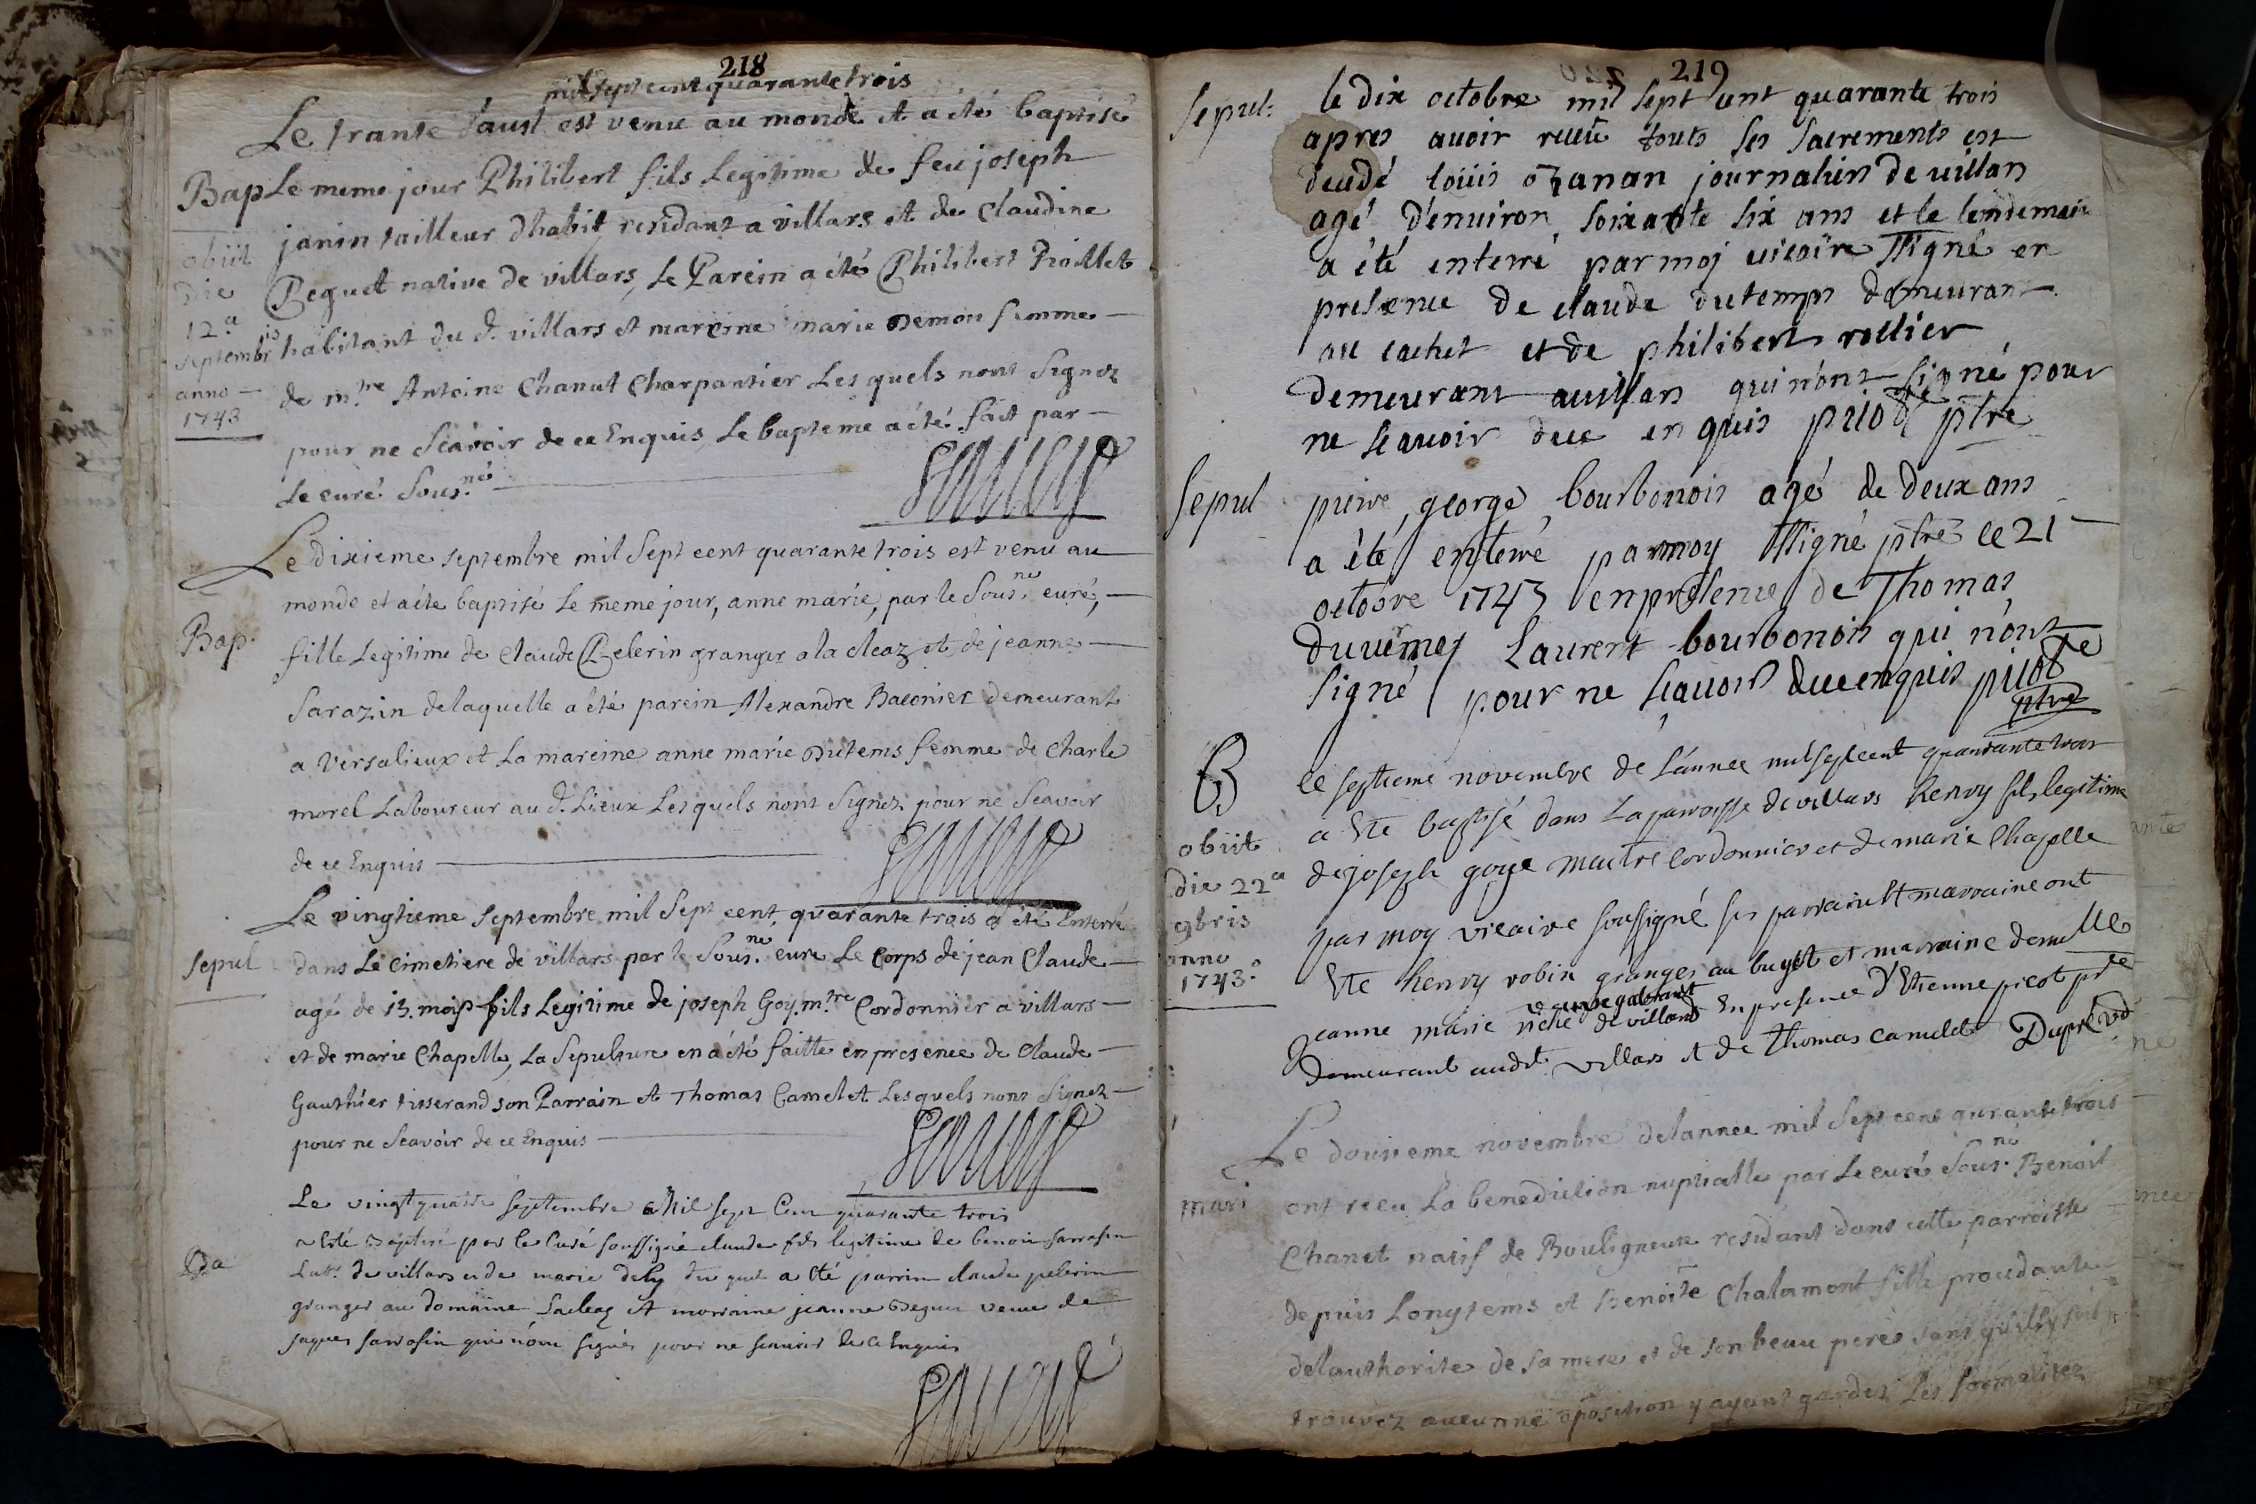 218
mil sept cent quarante trois
Le trante d'aust est venu au monde et a eté baptisé
Bap Le meme jour Philibert fils Legitime de feu joseph
janin tailleur dhabit residant a villars et de Claudine
Beguet native de villars, Le Parein a été Philibert
habitant du d. villars et mareine marie Demon femme
de m.tre Antoine Chanut Charpantier Lesquels nont Signez
pour ne Scavoir de ce Enquis, Le bapteme a été fait par
Le curé Sous.né
obiit
die
12.a
septembris
anno
1743
Le dixieme septembre mil Sept cent quarante trois est venu au
monde et a éte baptisé Le meme jour, anne marie, par le Sous.né curé,
Bap.
fille Legitime de Claude Pelerin granger a la cleaz et de jeanne
Sarazin delaquelle a été parein Alexandre Baconier demeurant
a Versalieux et La mareine anne marie Dutems femme de Charle
morel Laboureur au d. Lieux Lesquels nont Signez pour ne Scavoir
de ce Enquis
Le vingtieme septembre mil Sept cent quarante trois a été Enterré
Sepul
dans Le Cimetiere de villars par le Sous.né curé Le Corps de jean Claude
agé de 13. mois fils Legitime de joseph Goy m.tre Cordonnier a villars
et de marie Chapelle, La Sepulture en a été faitte en presence de Claude
Gauthier tisserand son Parrain et Thomas Camelet Lesquels nont Signez
pour ne Scavoir de ce Enquis
Le vingt quatre septembre Mil sept Cent quarante trois
Ba
a Eté Baptisé par le Curé soussigné claude fils legitime de benoit sarrasin
Lab. de villars et de marie du quel a Eté parrin claude pelerin
granger au domaine Lacleaz et marraine jeanne Beguet veuve de
jaques sarrasin qui n'ont signés pour ne scavoir de ce Enquis
219
Sepul:
le dix octobre mil sept cent quarante trois
apres avoir receu touts ses sacrements est
decedé loüis ozanan journalier de villars
agé d'environ soixante six ans et le lendemain
a été enterré par moj vicaire ssigné en
presence de claude dutemps demeurant
au cachet et de philibert rollier
demeurant a villars qui n'ont signé pour
ne scavoir de ce enquis ptre
Sepul
pierre, george bourbonois agé de deux ans
a été enterré par moy ssigné ptre ce 21
octobre 1743 en presence de Thomas
duvernej Laurent bourbonois qui n'ont
signé pour ne scavoir de ce enquis
ptre
B
le septieme novembre de l'année mil sept cent quarante trois
a Ete baptisé dans La parroisse de villars henry fils legitime
de joseph goye maitre Cordonnier et de marie Chapelle
par moy vicaire soussigné ses parrain et marraine ont
Ete henry robin granger au buget et marraine demelle
jeanne marie de villars En presence d'Etienne picot ptre
demeurant audt. villars et de Thomas camelet Dupré vic
obiit
die 22a
9bris
anno
1743.
Le dousieme novembre delannee mil Sept cent quarante trois
mari
ont recu La benediction nuptialle par Le curé Sous.né Benoit
Chanet natif de Bouligneux residant dans cette parroisse
depuis Longtems et Benoite Chalamont fille procedante
delauthorité de sa mere et de son beau pere sans quil sy soit
trouvez aucunne oposition y ayant gardez Les formalitez